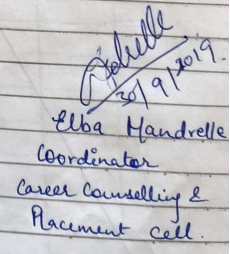 30/9/2019.
Elba Mandrelle
Coordinator
Career Counselling &
Placement Cell.